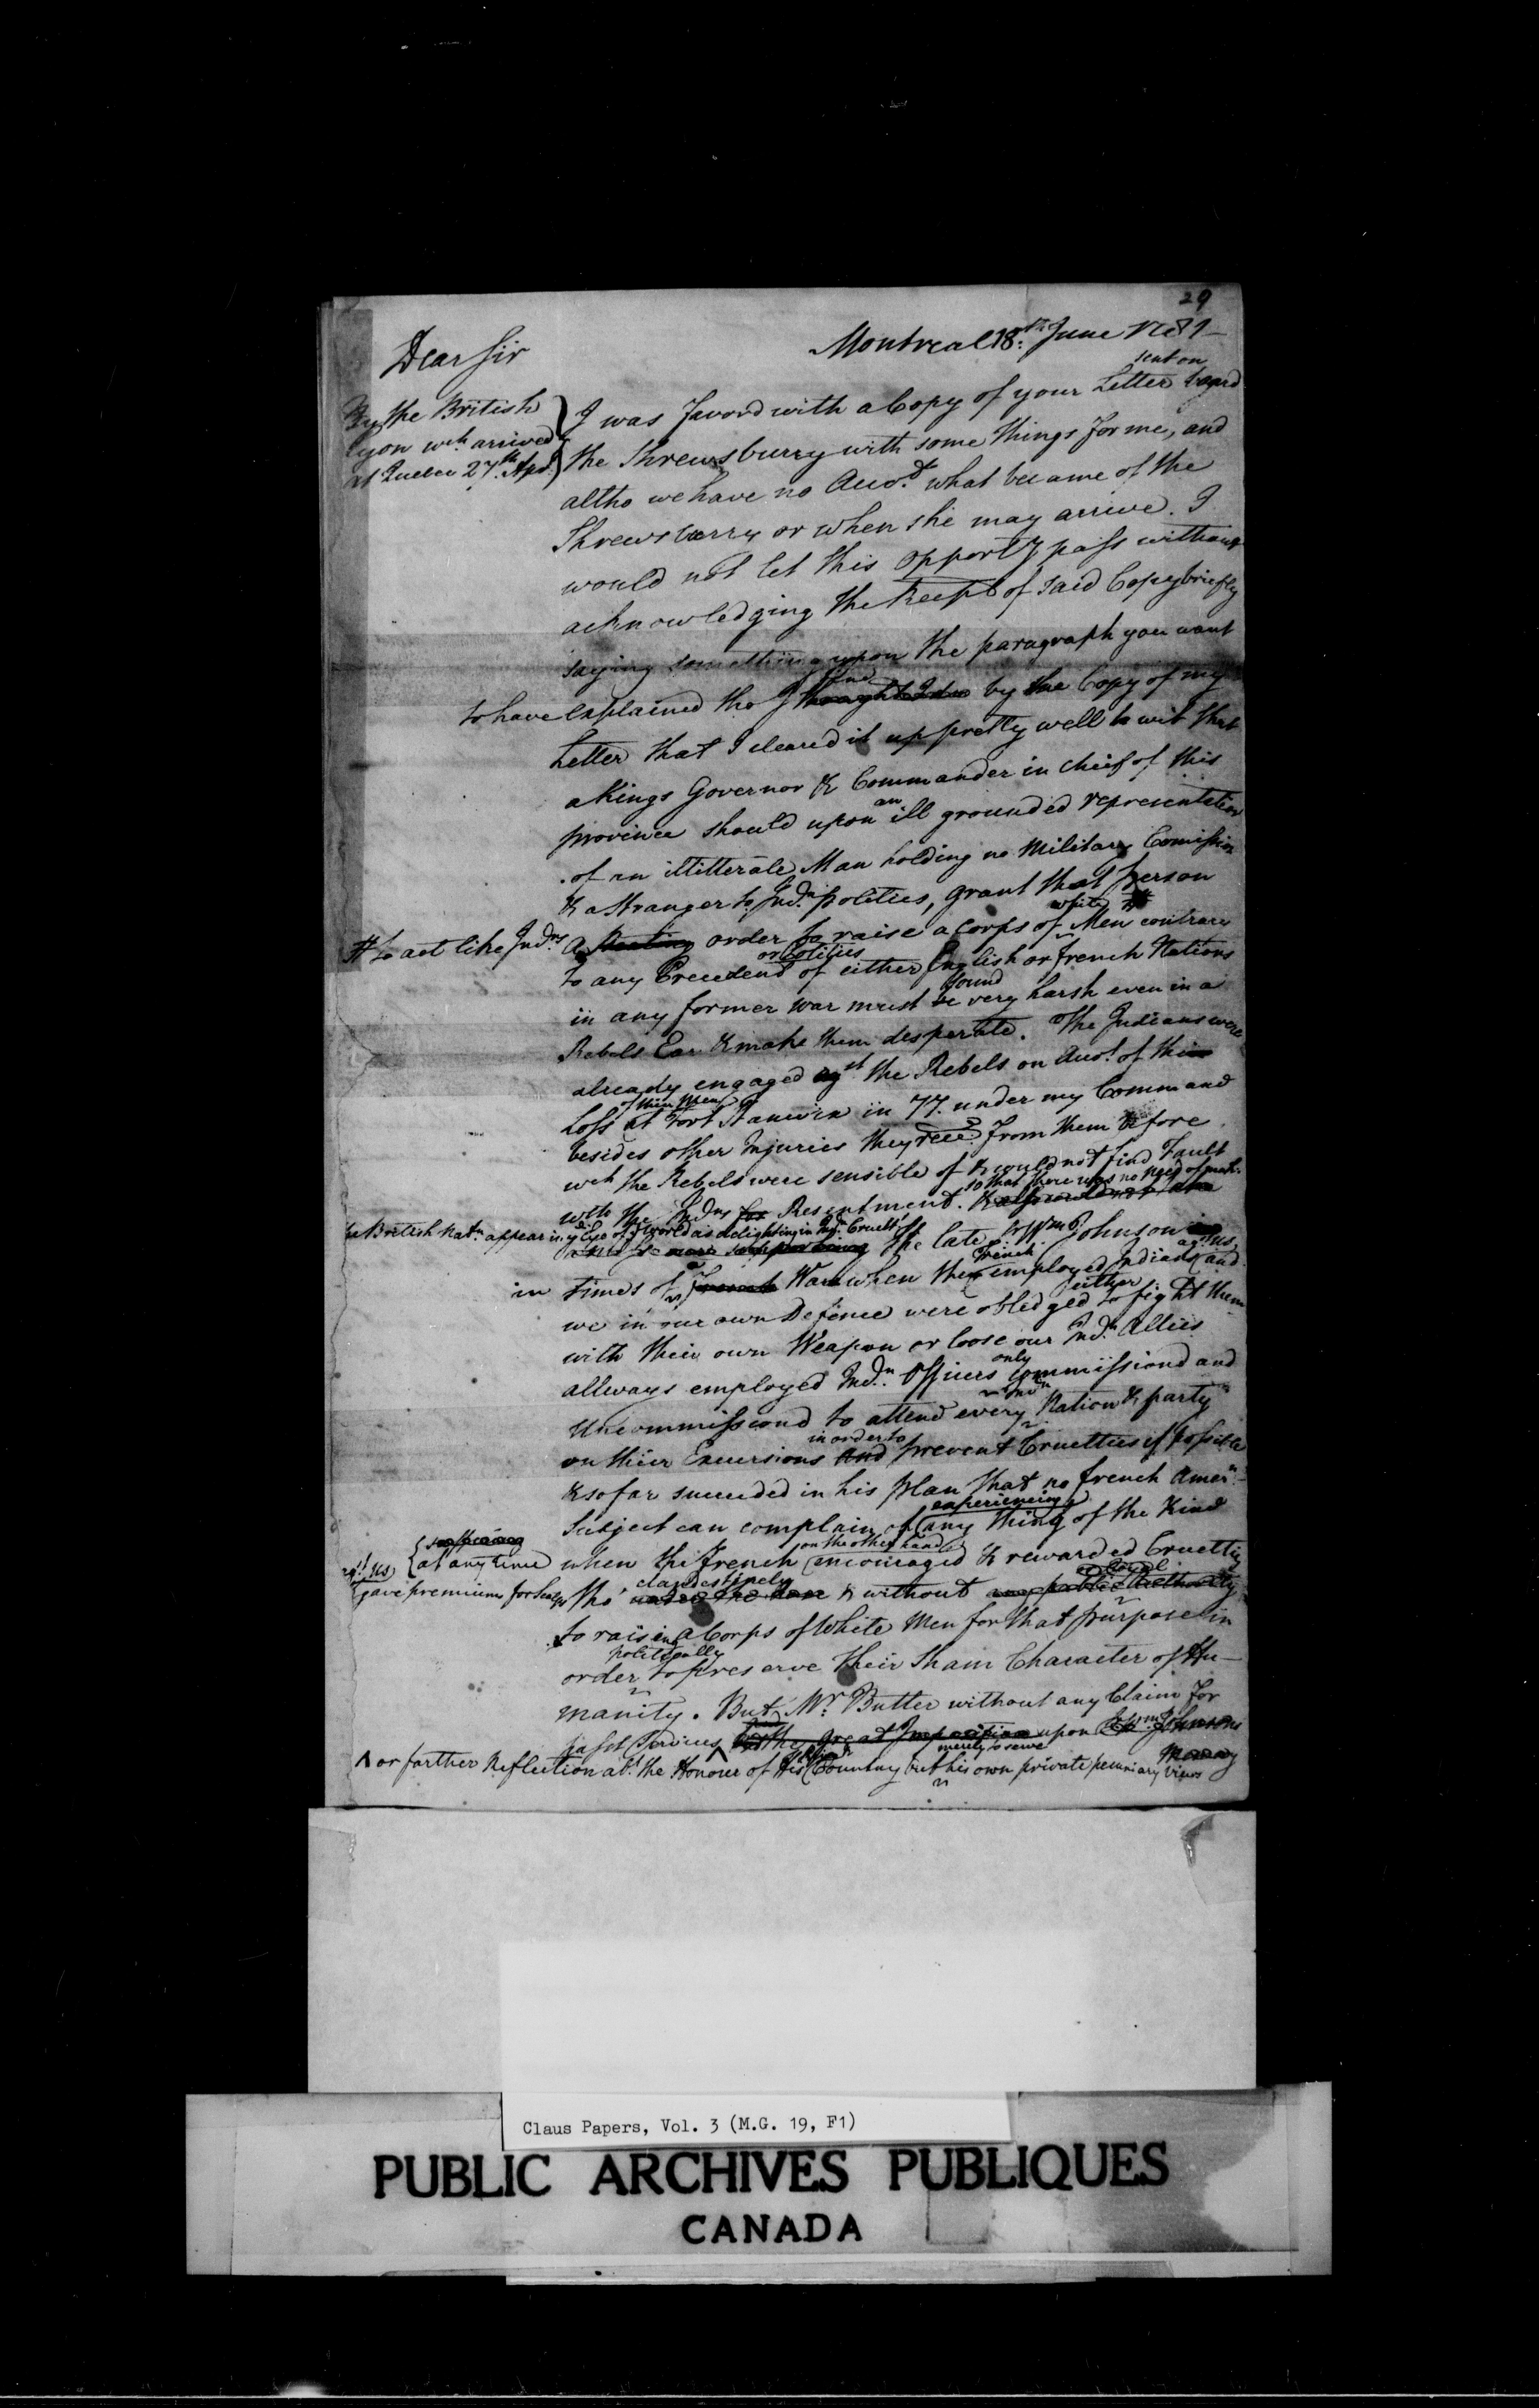 29
Montreal 18th. June 1781—
Dear Sir
By the British
Lyon wch. arrived
at Quebec 27th. Apl.
sent on
I was favord with a Copy of your Letter board
the Shrewsburry with some things for me, and
altho we have no Acco.t what became of the
Shrewsberry or when she may arrive. I
would not let this opporty pass without
acknowledging the Receipt of said Copy briefly
saying something upon the paragraph you want
find
to have explained tho I thought I du by the Copy of my
Letter that I cleared it up pretty well to wit that
a Kings Governor & Commander in chief of this
an
province should upon ill grounded representation
of an illitterate Man holding no Military Comission
& a Stranger to Indn. politics, grant that person
white #
# to act like Indns. a order to raise a Corps of Men contrary
or Politics
to any Precedend of either English or french Nations
sound
in any former war must be very harsh even in a
Rebels Ear & make them desperate. The Indians were
already engaged agst the Rebels on Acco.t of their
of their Men
Loss at Fort Stanwix in 77. under my Command
besides other Injuries they recd. from them before
wch the Rebels were sensible of & would not find Fault
so that there was no need of mak.
with the Indns for Resentment.
the British Natn. appear in ye. Eye of ye world as delighting in Indn. Cruelty
The late Sr Wm. Johnson
agt. us
a french
in times of french War when they employed Indians and
either
we in our own Defence were obledged to fight them
with their own Weapon or loose our Indn. Allies
only
allways employed Indn. Officers commissiond and
Indn
Uncommissiond to attend every Nation & party
in order to
on their Excursions and prevent Cruelties if possible
& so far succeeded in his plan that no french Amern.
experiencing
Subject can complain of any thing of the Kind
suffering
agt. us at any time
on the other hand
when the french encouraged & rewarded Cruelty
gave premium for Scalps
clandestinely
or legal
tho' under the rose & without any public Authority
to raising a Corps of White Men for that purpose in
politically
order to preserve their Sham Character of Hu-
manity. But Mr. Butler without any Claim for
past Services the great Imposition upon Sr. Wm. Johnsons
merely to serve
∧ or farther Reflection abt. the Honour of His Country but his own private pecuniary views
Claus Papers, Vol. 3 (M.G. 19, F1)
PUBLIC ARCHIVES PUBLIQUES
CANADA